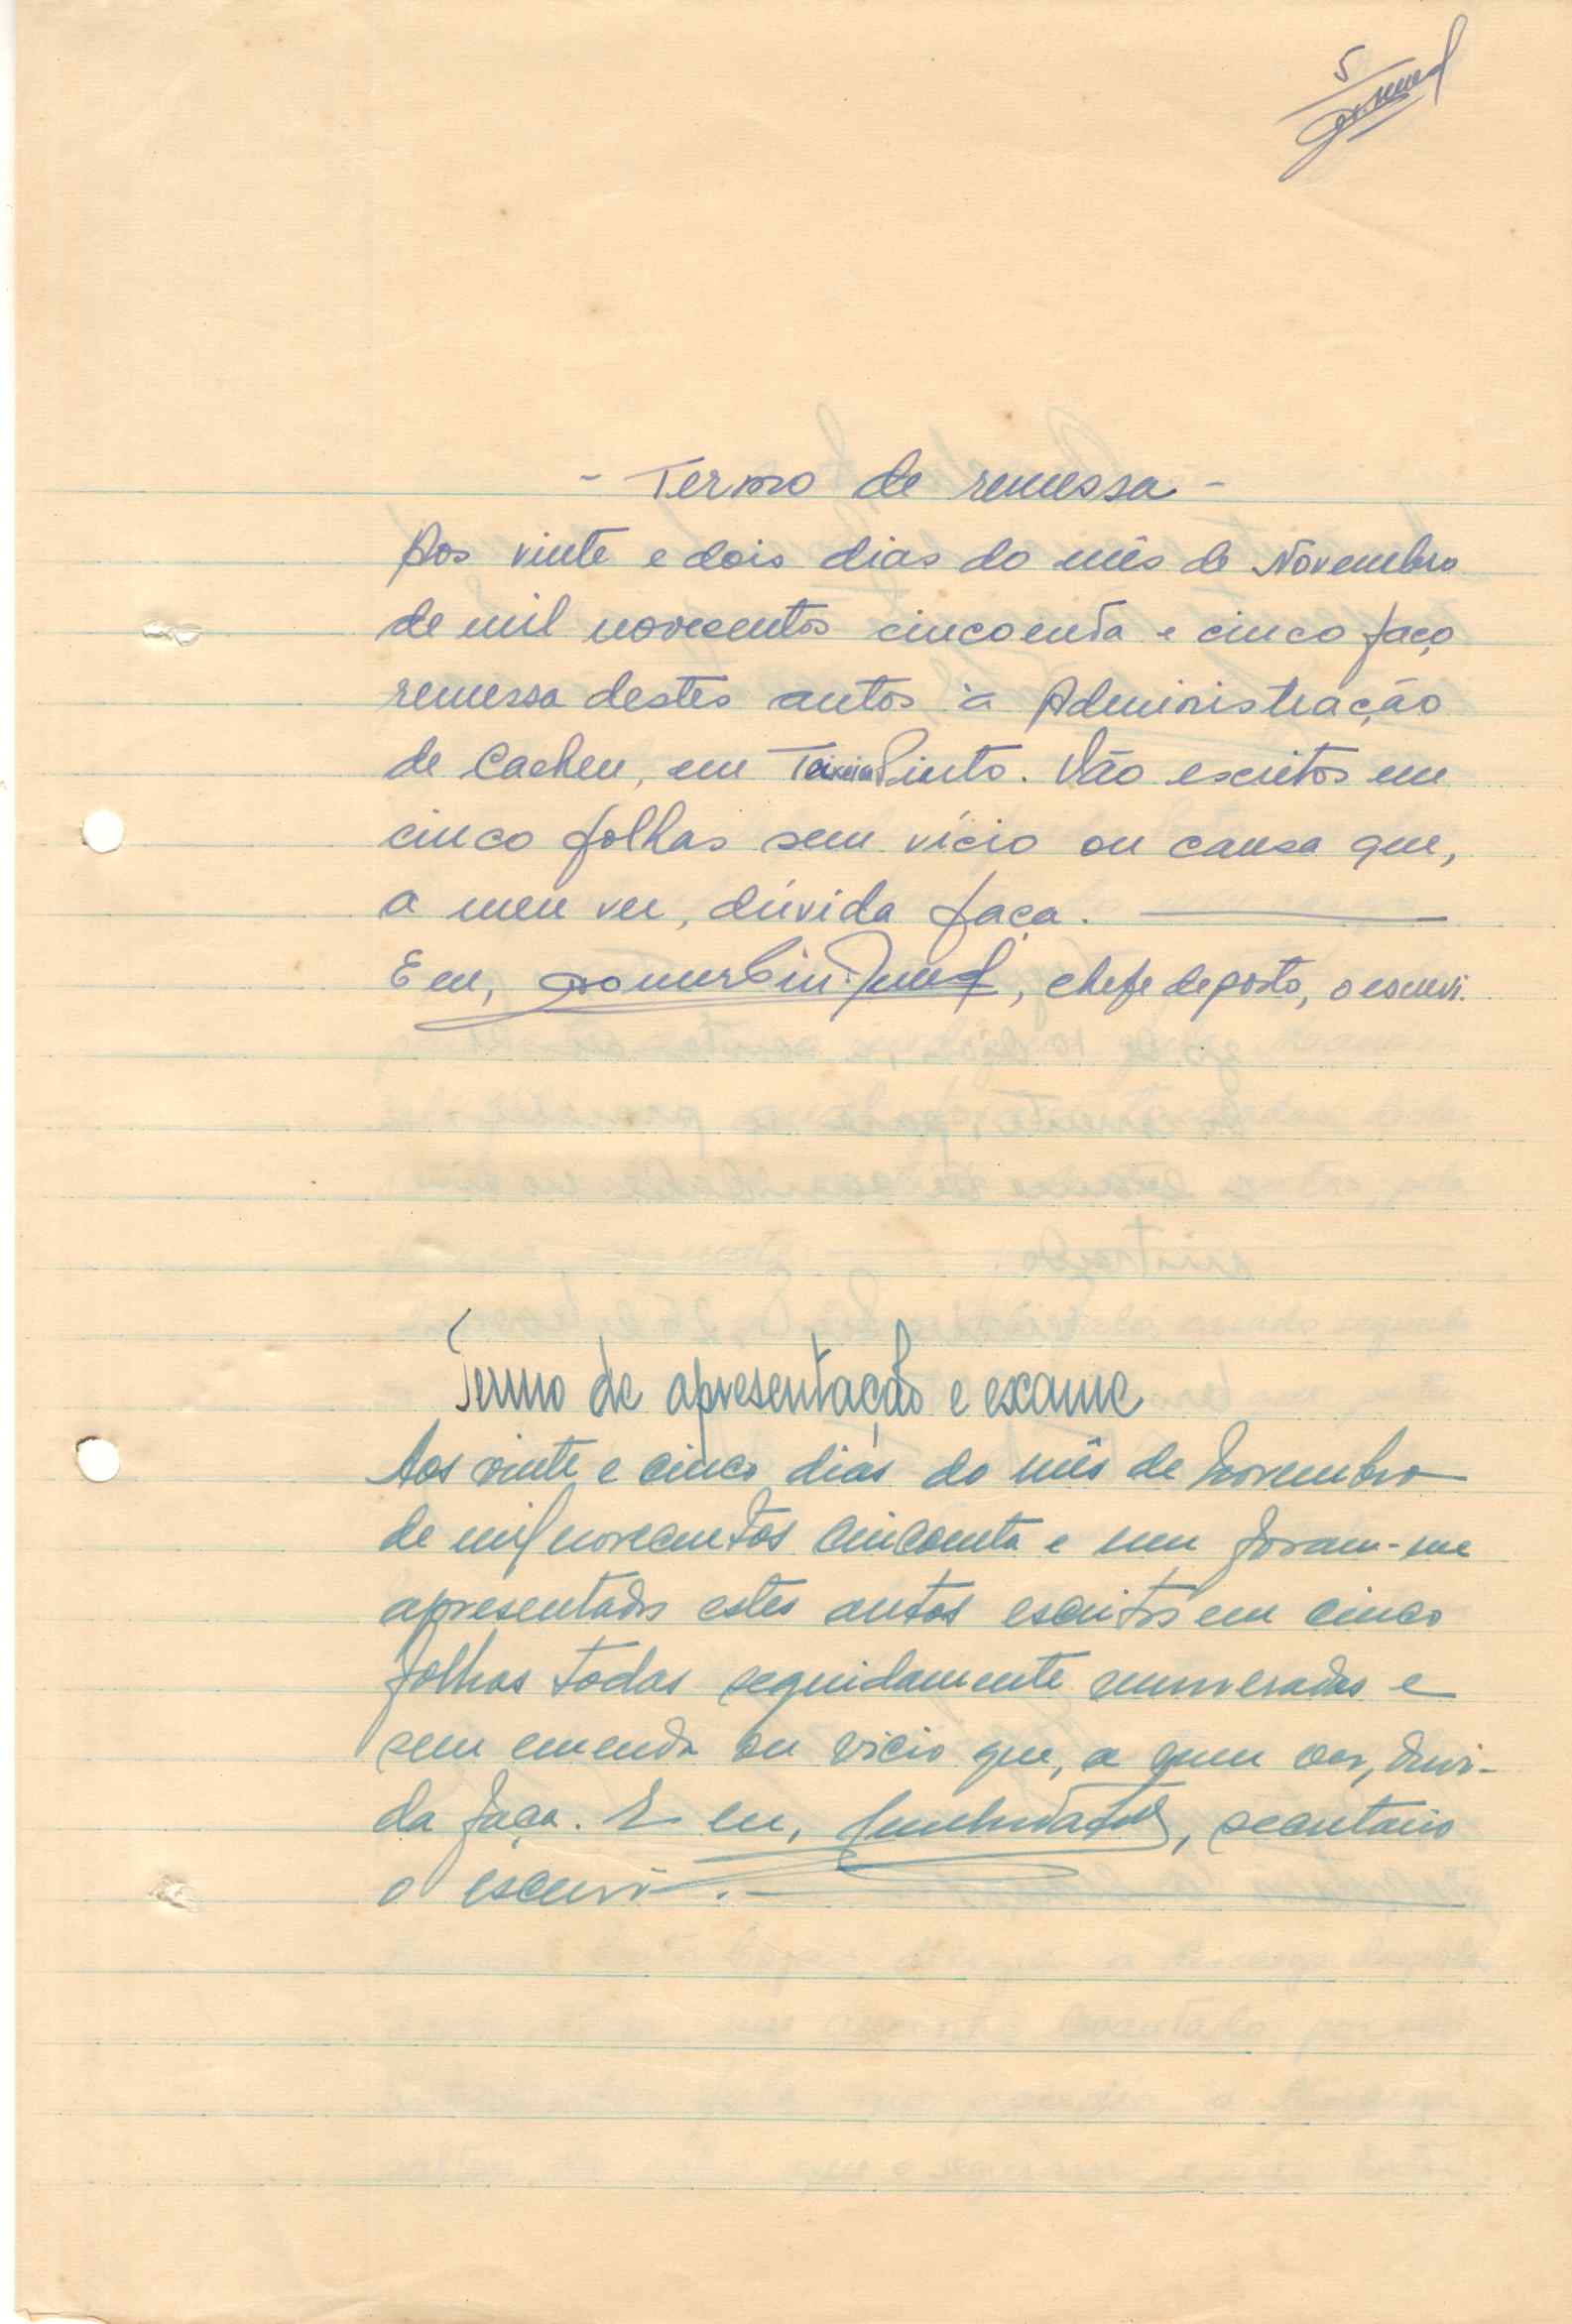 5
- Termo de remessa -
Aos vinte e dois dias do mês de Novembro
de mil novecentos cincoenta e cinco faço
remessa destes autos à Administração
de Cacheu, em Teixeira Pinto. Vão escritos em
cinco folhas sem vício ou causa que,
a meu ver, dúvida faça.
E eu, , chefe de posto, o escrevi.
Termo de apresentação e exame
Aos vinte e cinco dias do mês de Novembro
de mil novecentos cincoenta e um foram-me
apresentados estes autos escritos em cinco
folhas todas seguidamente numeradas e
sem emenda ou vicio que, a meu ver, duvi-
da faça. E eu, , secretário
o escrevi.